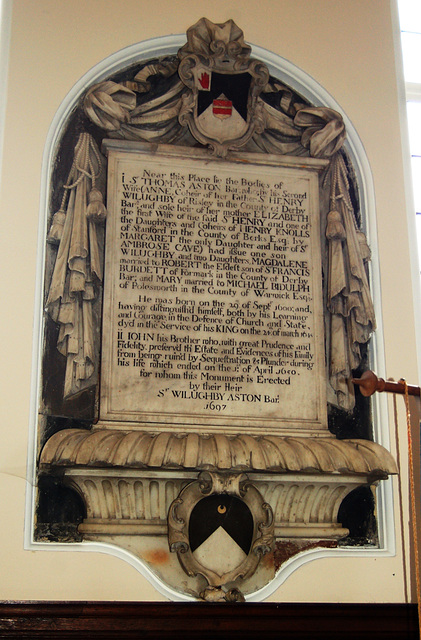 Near this Place lie the Bodies of
I. Sr. THOMAS ASTON Bar. also his Second
Wife ANNE, Coheir of her Father Sr HENRY
WILUGHBY of Risley in the County of Derby
Bart. and sole heir of her mother ELIZABETH
the first Wife of the said Sr HENRY and one of
the Daughters and Coheirs of HENRY KNOLLS
of Stanford in the County of Berks Esq. by
MARGARET the only Daughter and heir of Sr
AMBROSE CAVE) had issue one son
WILUGHBY, and two Daughters, MAGDALENE
married to ROBERT the Eldest son of Sr FRANCIS
BURDETT of Formark in the County of Derby
Bar; and MARY married to MICHAEL BIDULPH
of Polesworth in the County of Warwick Esq.
He was born on the 29 of Sept. 1600; and,
having distinguish'd himself, both by his Learning
and Courage in the Defence of Church and State,
dy'd in the Service of his KING on the 24 of march
II IOHN his Brother who, with great Prudence and
Fidelity, preserv'd his Estate and Evidences of his family
from being ruin'd by Sequestration & Plunder during
his life which ended on the of April 1650.
for whom this Monument is Erected
by their Heir
Sr WILUGHBY ASTON Bart
1697